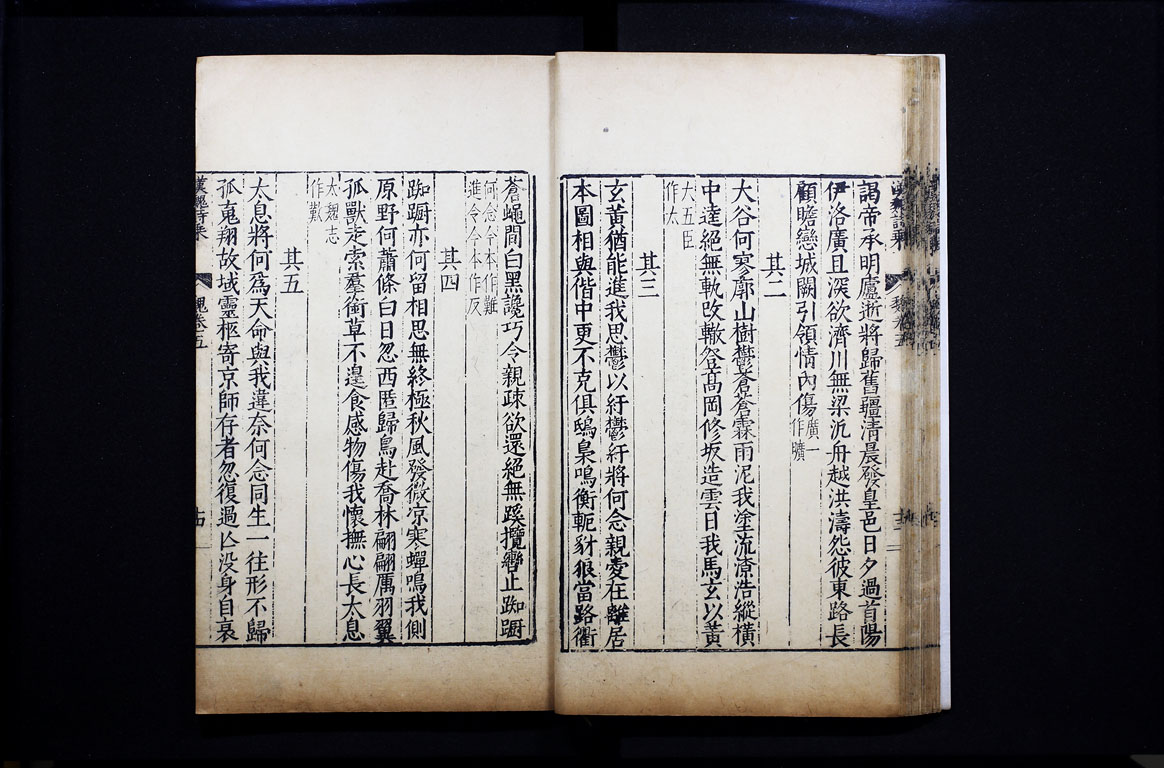 謁帝承明廬逝將歸舊疆清晨發皇邑日夕過首陽
伊洛廣且深欲濟川無梁汎舟越洪濤怨彼東路長
顧瞻戀城闕引領情內傷廣一作曠
其二
大谷何寥廓山樹鬱蒼蒼霖雨泥我塗流潦浩縱橫
中逵絕無軌改轍登髙岡修坂造雲日我馬玄以黃
大五臣作太
其三
玄黃猶能進我思鬱以紆鬱紆將何念親愛在離居
本圖相與偕中更不克俱鴟梟鳴衡軛豺狼當路衢
蒼蠅間白黑讒巧令親疎欲還絕無蹊攬轡止踟蹰
何念今本作難進令今本作反
其四
踟蹰亦何留相思無終極秋風發微凉寒蟬鳴我側
原野何蕭條白日忽西匿歸鳥赴喬林翩翩厲羽翼
孤獸走索羣銜草不遑食感物傷我懷撫心長太息
太魏志作歎
其五
太息將何爲天命與我違奈何念同生一往形不歸
孤䰟翔故域靈柩寄京師存者忽復過亾没身自衰
漢魏詩乗
魏卷五
十四